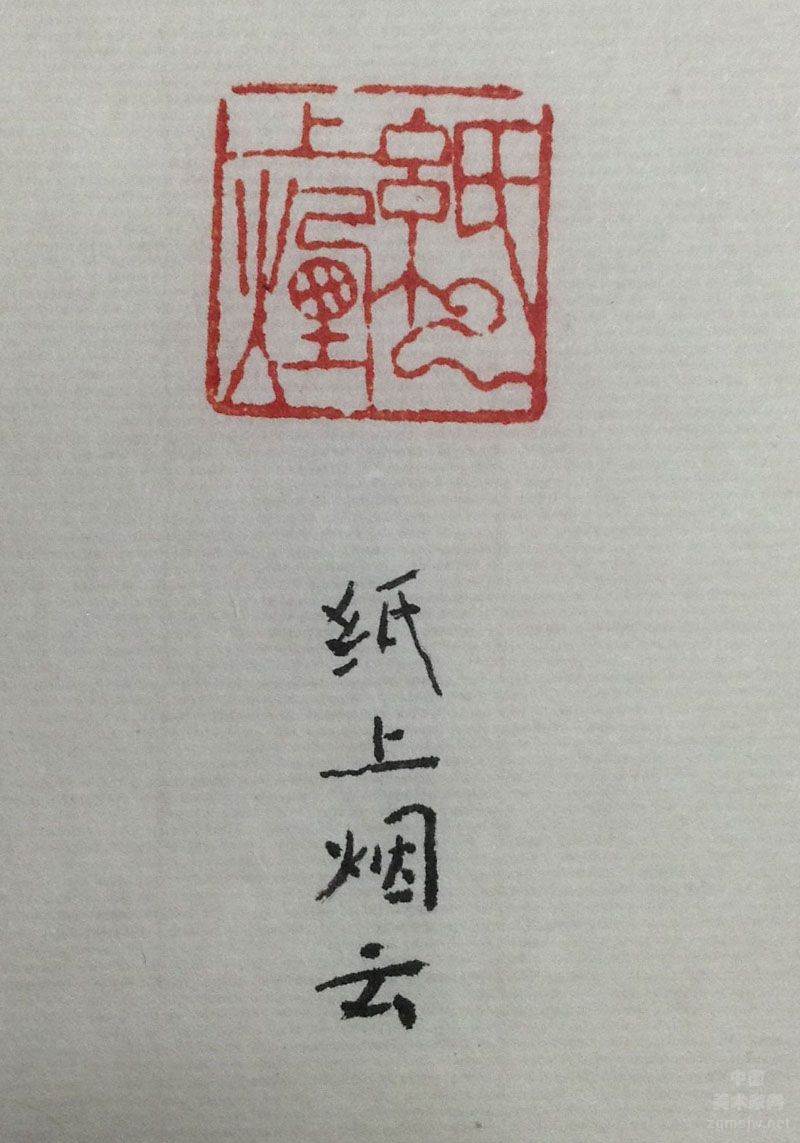 纸上烟云
纸上烟云
中国
美术家网
zgmsjw.net